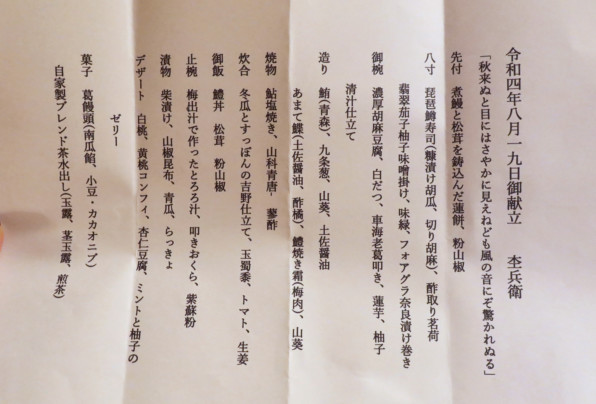 令和四年八月一九日御献立　杢兵衛
「秋来ぬと目にはさやかに見えねども風の音にぞ驚かれぬる」
先付　煮鰻と松茸を鋳込んだ蓮餅、粉山椒
八寸　琵琶鱒寿司(糠漬け胡瓜、切り胡麻)、酢取り茗荷
翡翠茄子柚子味噌掛け、味緑、フォアグラ奈良漬け巻き
御椀　濃厚胡麻豆腐、白だつ、車海老葛叩き、蓮芋、柚子
清汁仕立て
造り　鮪(青森)、九条葱、山葵、土佐醤油
あまて鰈(土佐醤油、酢橘)、鱧焼き霜(梅肉)、山葵
焼物　鮎塩焼き、山科青唐、蓼酢
炊合　冬瓜とすっぽんの吉野仕立て、玉蜀黍、トマト、生姜
御飯　鱧丼　松茸　粉山椒
止椀　梅出汁で作ったとろろ汁、叩きおくら、紫蘇粉
漬物　柴漬け、山椒昆布、青瓜、らっきょ
デザート　白桃、黄桃コンフィ、杏仁豆腐、ミントと柚子の
ゼリー
菓子　葛饅頭(南瓜餡、小豆・カカオニブ)
自家製ブレンド茶水出し(玉露、茎玉露、煎茶)